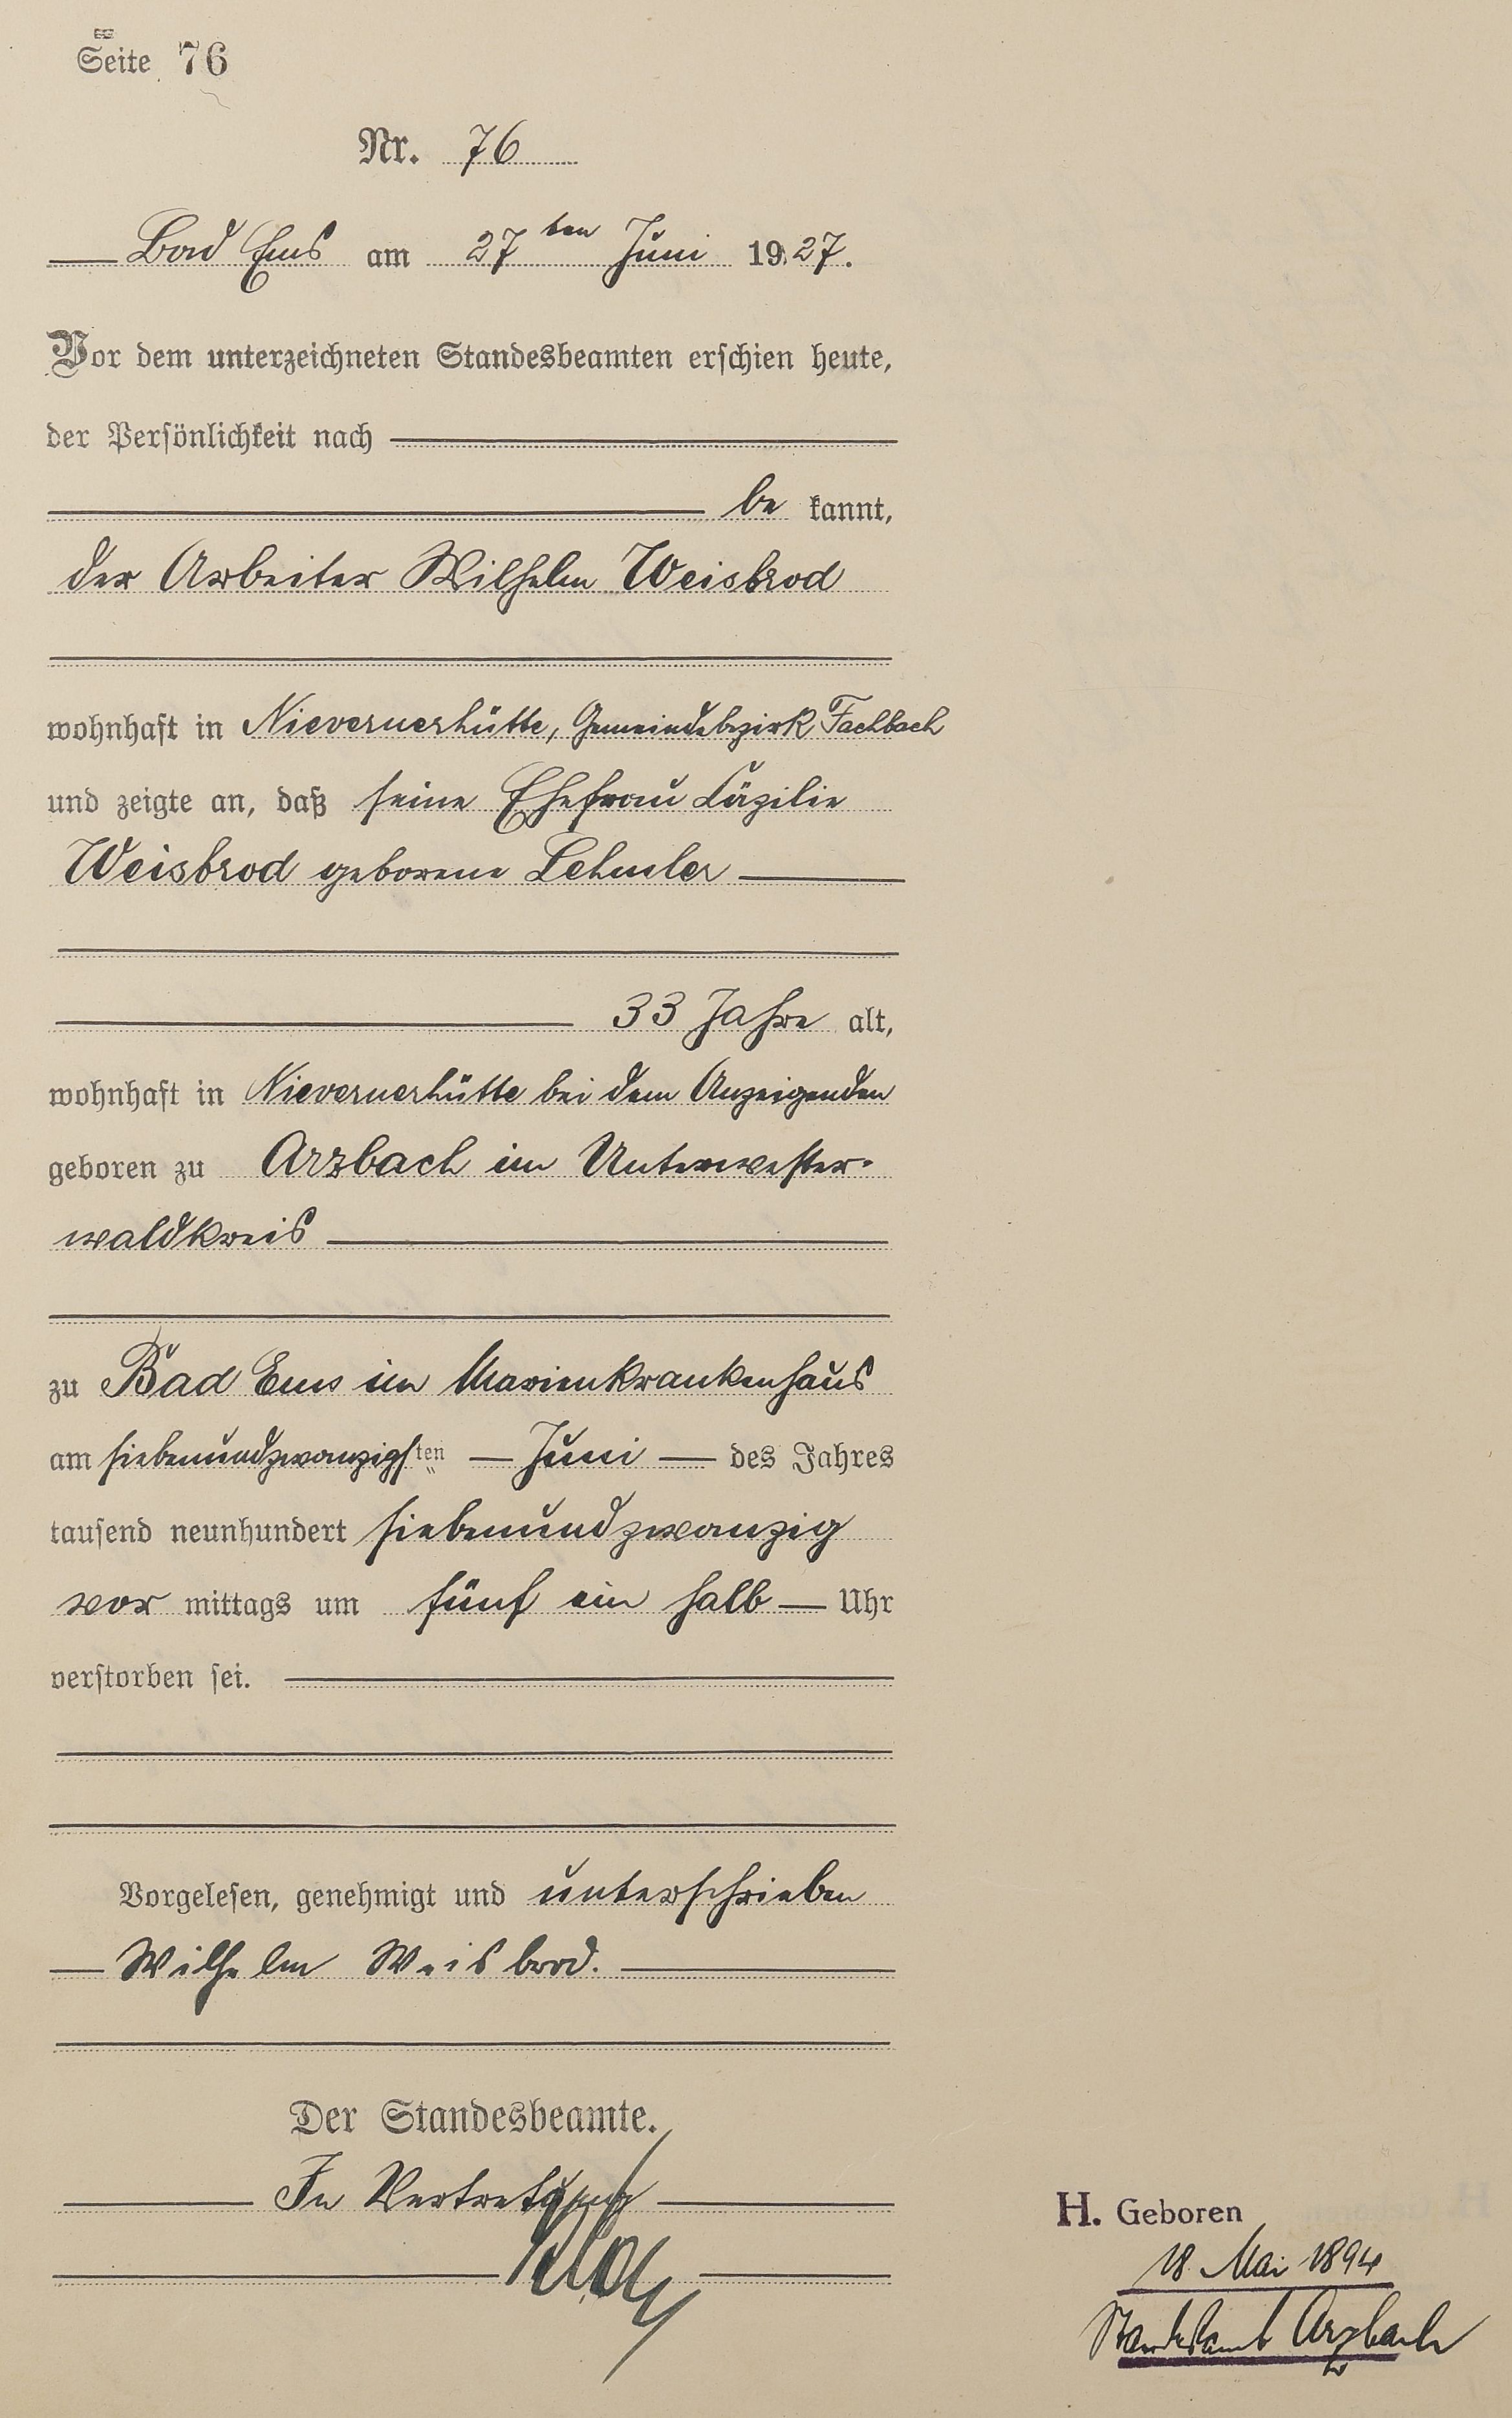 Seite 76
Nr. 76
Bad Ems am 27ten Juni 1927.
Vor dem unterzeichneten Standesbeamten erschien heute,
der Persönlichkeit nach
be kannt,
der Arbeiter Wilhelm Weisbrod
wohnhaft in Nievernerhütte, Gemeindebezirk Fachbach
und zeigte an, daß seine Ehefrau Cäzilie
Weisbrod geborene Lehmler
33 Jahre alt,
wohnhaft in Nievernerhütte bei dem Anzeigenden
geboren zu Arzbach im Unterwester-
waldkreis
zu Bad Ems im Marienkrankenhaus
am siebenundzwanzigsten Juni des Jahres
tausend neunhundert siebenundzwanzig
vor mittags um fünf ein halb Uhr
verstorben sei.
Vorgelesen, genehmigt und unterschrieben
Wilhelm Weisbrod.
Der Standesbeamte.
In Vertretung
H. Geboren
18. Mai 1894
Standesamt Arzbach